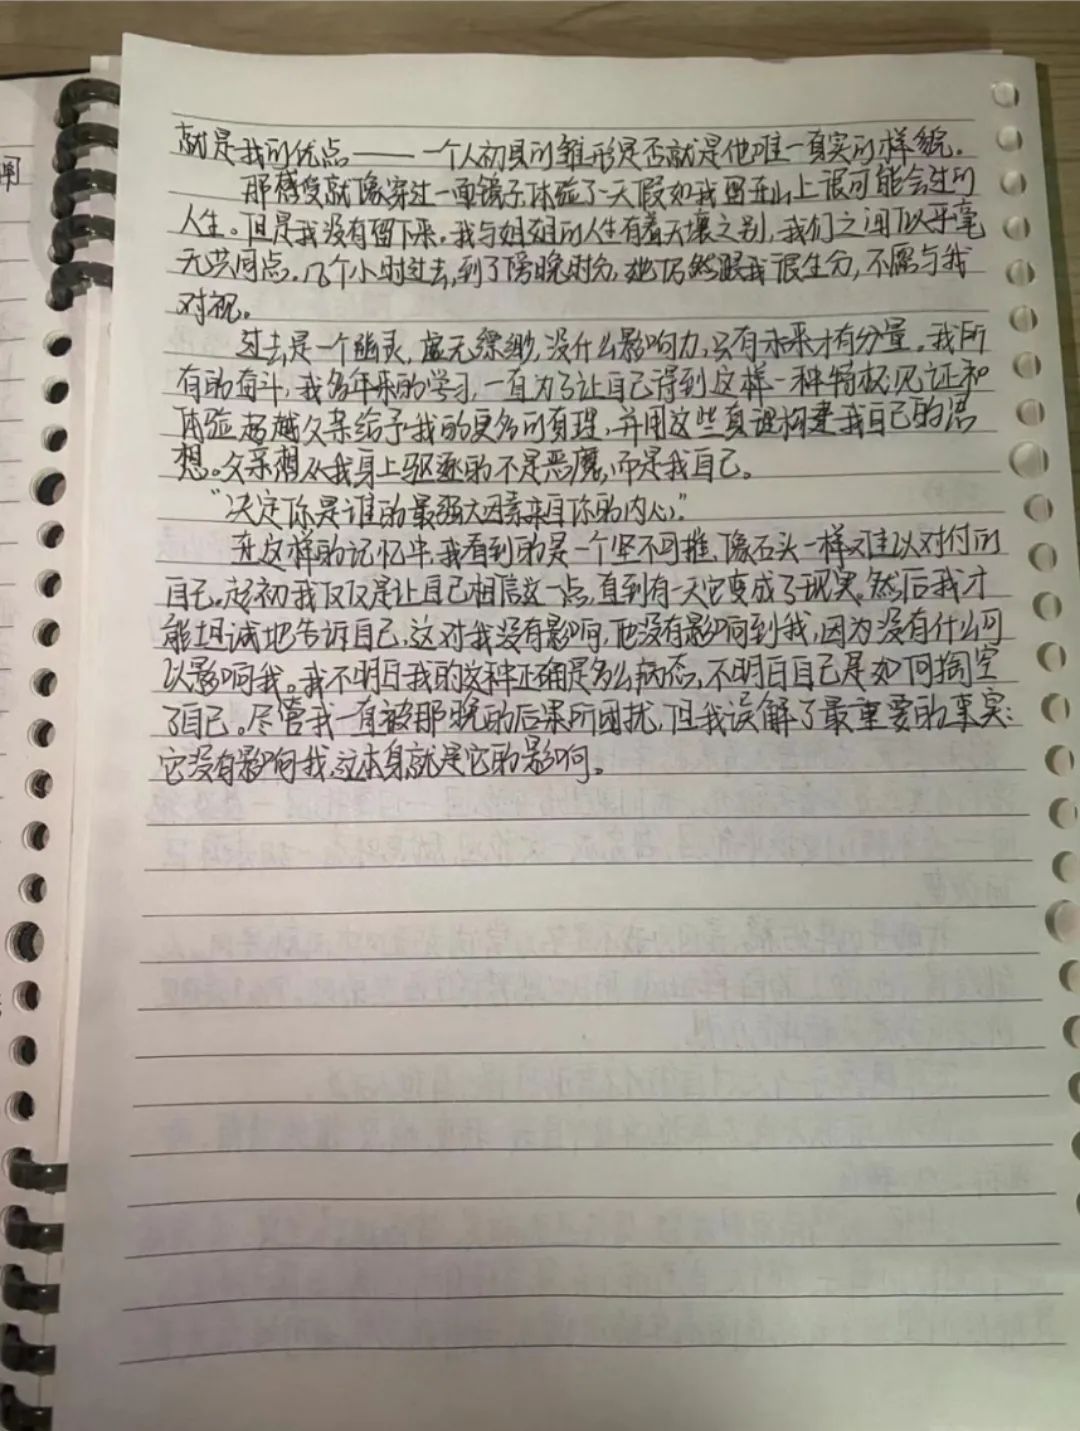 就是我的优点——一个人初具的雏形是否就是他唯一真实的样貌。
那感受就像穿过一面镜子,体验了一天假如我留在山上很可能会过的
人生。但是我没有留下来。我与姐姐的人生有着天壤之别,我们之间似乎毫
无共同点。几个小时过去,到了傍晚时分,她仍然跟我很生分,不愿与我
对视。
过去是一个幽灵,虚无缥缈,没什么影响力,只有未来才有分量。我所
有的奋斗,我多年来的学习,一直为了让自己得到这样一种特权:见证和
体验超越父亲给予我的更多的真理,并用这些真理构建我自己的思
想。父亲想从我身上驱逐的不是恶魔,而是我自己。
“决定你是谁的最强大因素来自你的内心”
在这样的记忆中,我看到的是一个坚不可摧、像石头一样难以对付的
自己。起初我仅仅是让自己相信这一点,直到有一天它变成了现实。然后我才
能坦诚地告诉自己,这对我没有影响,他没有影响到我,因为没有什么可
以影响我。我不明白我的这种正确是多么病态,不明白自己是如何掏空
了自己。尽管我一直被那晚的后果所困扰,但我误解了最重要的事实:
它没有影响我,这本身就是它的影响。